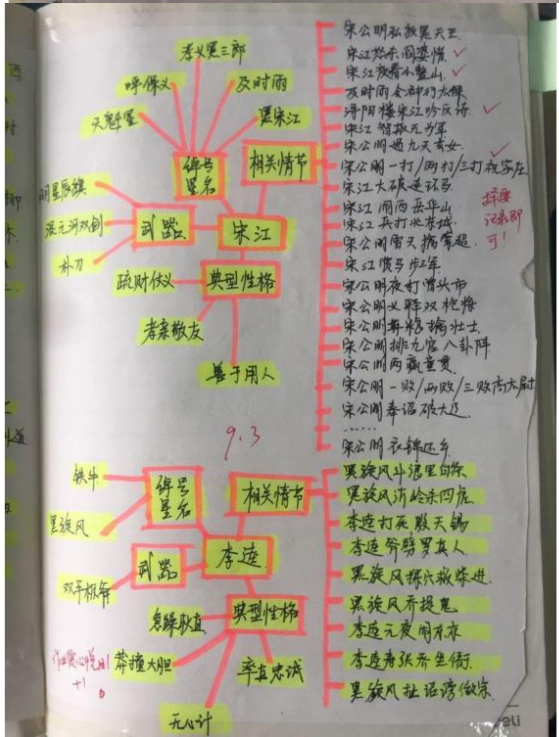 孝义黑三郎
呼保义
及时雨
天魁星
黑宋江
绰号
星名
相关情节
武器
宋江
混元河双剑
朴刀
疏财仗义
典型性格
孝亲敬友
善于用人
宋公明私放晁天王
宋江怒杀阎婆惜
宋江夜看小鳌山
及时雨会神行太保
浔阳楼宋江吟反诗
宋江智取无为军
宋公明遇九天玄女
宋公明一打/两打/三打祝家庄
宋江大破连环马
宋江闹西岳华山
宋江兵打北京城
宋公明雪天擒索超
宋江赏马步三军
宋公明夜打曾头市
宋公明义释双枪将
宋公明弃粮擒壮士
宋公明排九宫八卦阵
宋公明两赢童贯
宋公明一败/两败/三败高太尉
宋公明奉诏破大辽
……
宋公明衣锦还乡
择要
记录即
可！
9.3
铁牛
黑旋风
绰号
星名
相关情节
武器
李逵
双手板斧
急躁耿直
典型性格
莽撞大胆
率真忠诚
无心计
+1
黑旋风斗浪里白条
黑旋风沂岭杀四虎
李逵打死殷天锡
李逵斧劈罗真人
黑旋风探穴救柴进
黑旋风乔捉鬼
李逵元夜闹东京
李逵寿张乔坐衙
黑旋风扯诏谤徽宗
deli